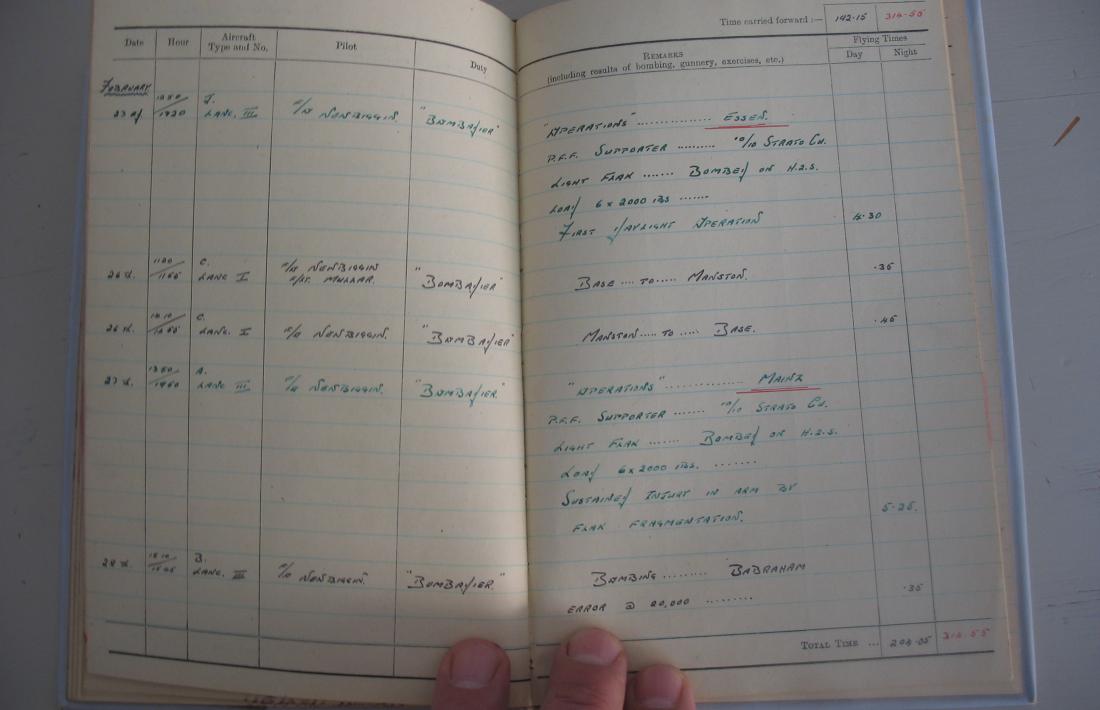 Time carried forward :— 142·15 314·55
Date Hour Aircraft Type and No. Pilot Duty REMARKS (including results of bombing, gunnery, exercises, etc.) Flying Times Day Night
FEBRUARY
23 J. LANC. III NEWBIGGIN. "BOMBADIER" "OPERATIONS" .............. ESSEN.
P.F.F. SUPPORTER ......... 10/10 STRATO CU.
LIGHT FLAK ....... BOMBED ON H.2.S.
LOAD 6 x 2000 LBS .......
FIRST DAYLIGHT OPERATION 4·30
26 C. LANC I NEWBIGGIN "BOMBADIER" BASE .... TO ..... MANSTON. ·35
26 C. LANC. I NEWBIGGIN. "BOMBADIER" MANSTON..... TO ..... BASE. ·45
27 A. LANC III NEWBIGGIN. "BOMBADIER." "OPERATIONS" .............. MAINZ
P.F.F. SUPPORTER ....... 10/10 STRATO CU.
LIGHT FLAK ....... BOMBED ON H.2.S.
LOAD 6 x 2000 LBS. .......
SUSTAINED INJURY IN ARM BY
FLAK FRAGMENTATION. 5·25.
28 B. LANC. III NEWBIGGIN. "BOMBADIER." BOMBING ......... BABRAHAM
ERROR @ 20,000 ......... ·35
TOTAL TIME ... 314·55